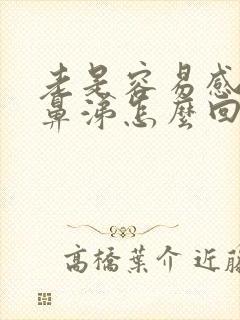 老是容易感
鼻涕怎麼回
高橋葉介 近藤